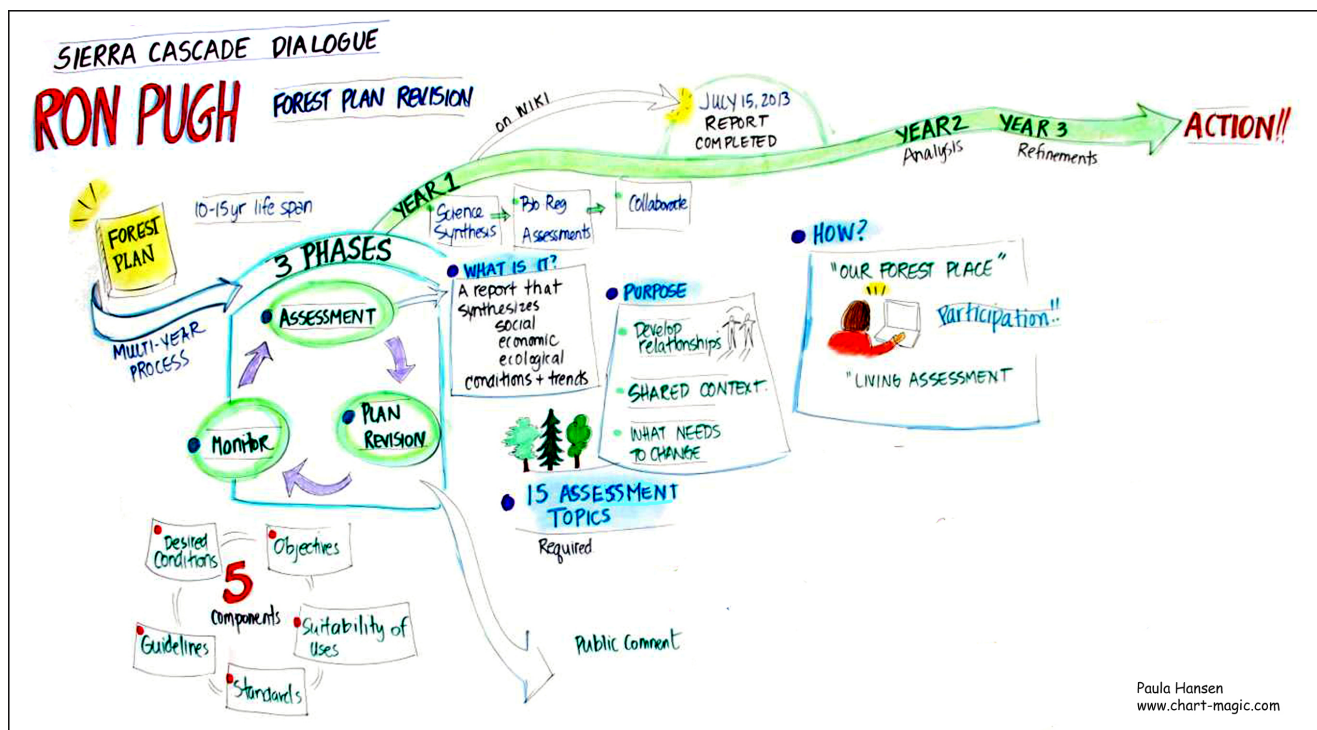 SIERRA CASCADE DIALOGUE
RON PUGH
FOREST PLAN REVISION
on WIKI
JULY 15, 2013
REPORT
COMPLETED
YEAR 1
YEAR 2
Analysis
YEAR 3
Refinements
ACTION!!
FOREST
PLAN
10-15yr life span
MULTI-YEAR
PROCESS
3 PHASES
ASSESSMENT
PLAN
REVISION
MONITOR
Science
Synthesis
Bio Reg
Assessments
Collaborate
WHAT IS IT?
A report that
synthesizes
social
economic
ecological
conditions + trends
PURPOSE
Develop
relationships
SHARED CONTEXT.
WHAT NEEDS
TO CHANGE
HOW?
"OUR FOREST PLACE"
Participation!!
"LIVING ASSESSMENT
15 ASSESSMENT
TOPICS
Required
5
components
Desired
Conditions
Objectives
Suitability of
Uses
Standards
Guidelines
Public Comment
Paula Hansen
www.chart-magic.com